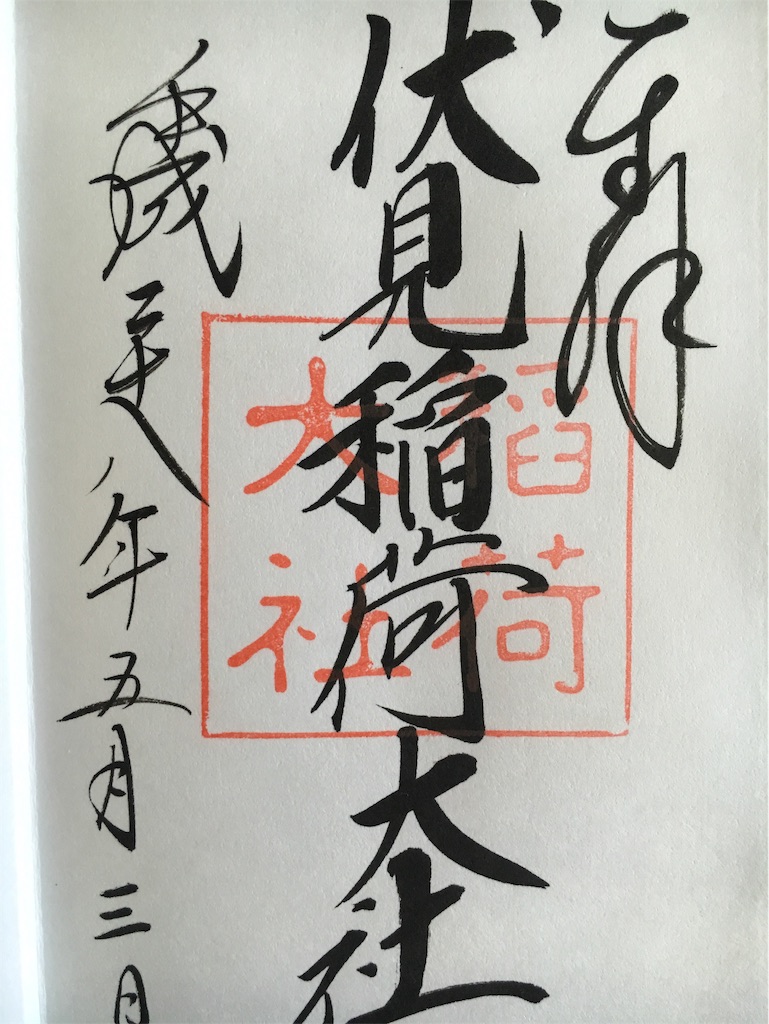 奉拝
伏見稲荷大社
稻荷
大社
平成二十八年五月三日